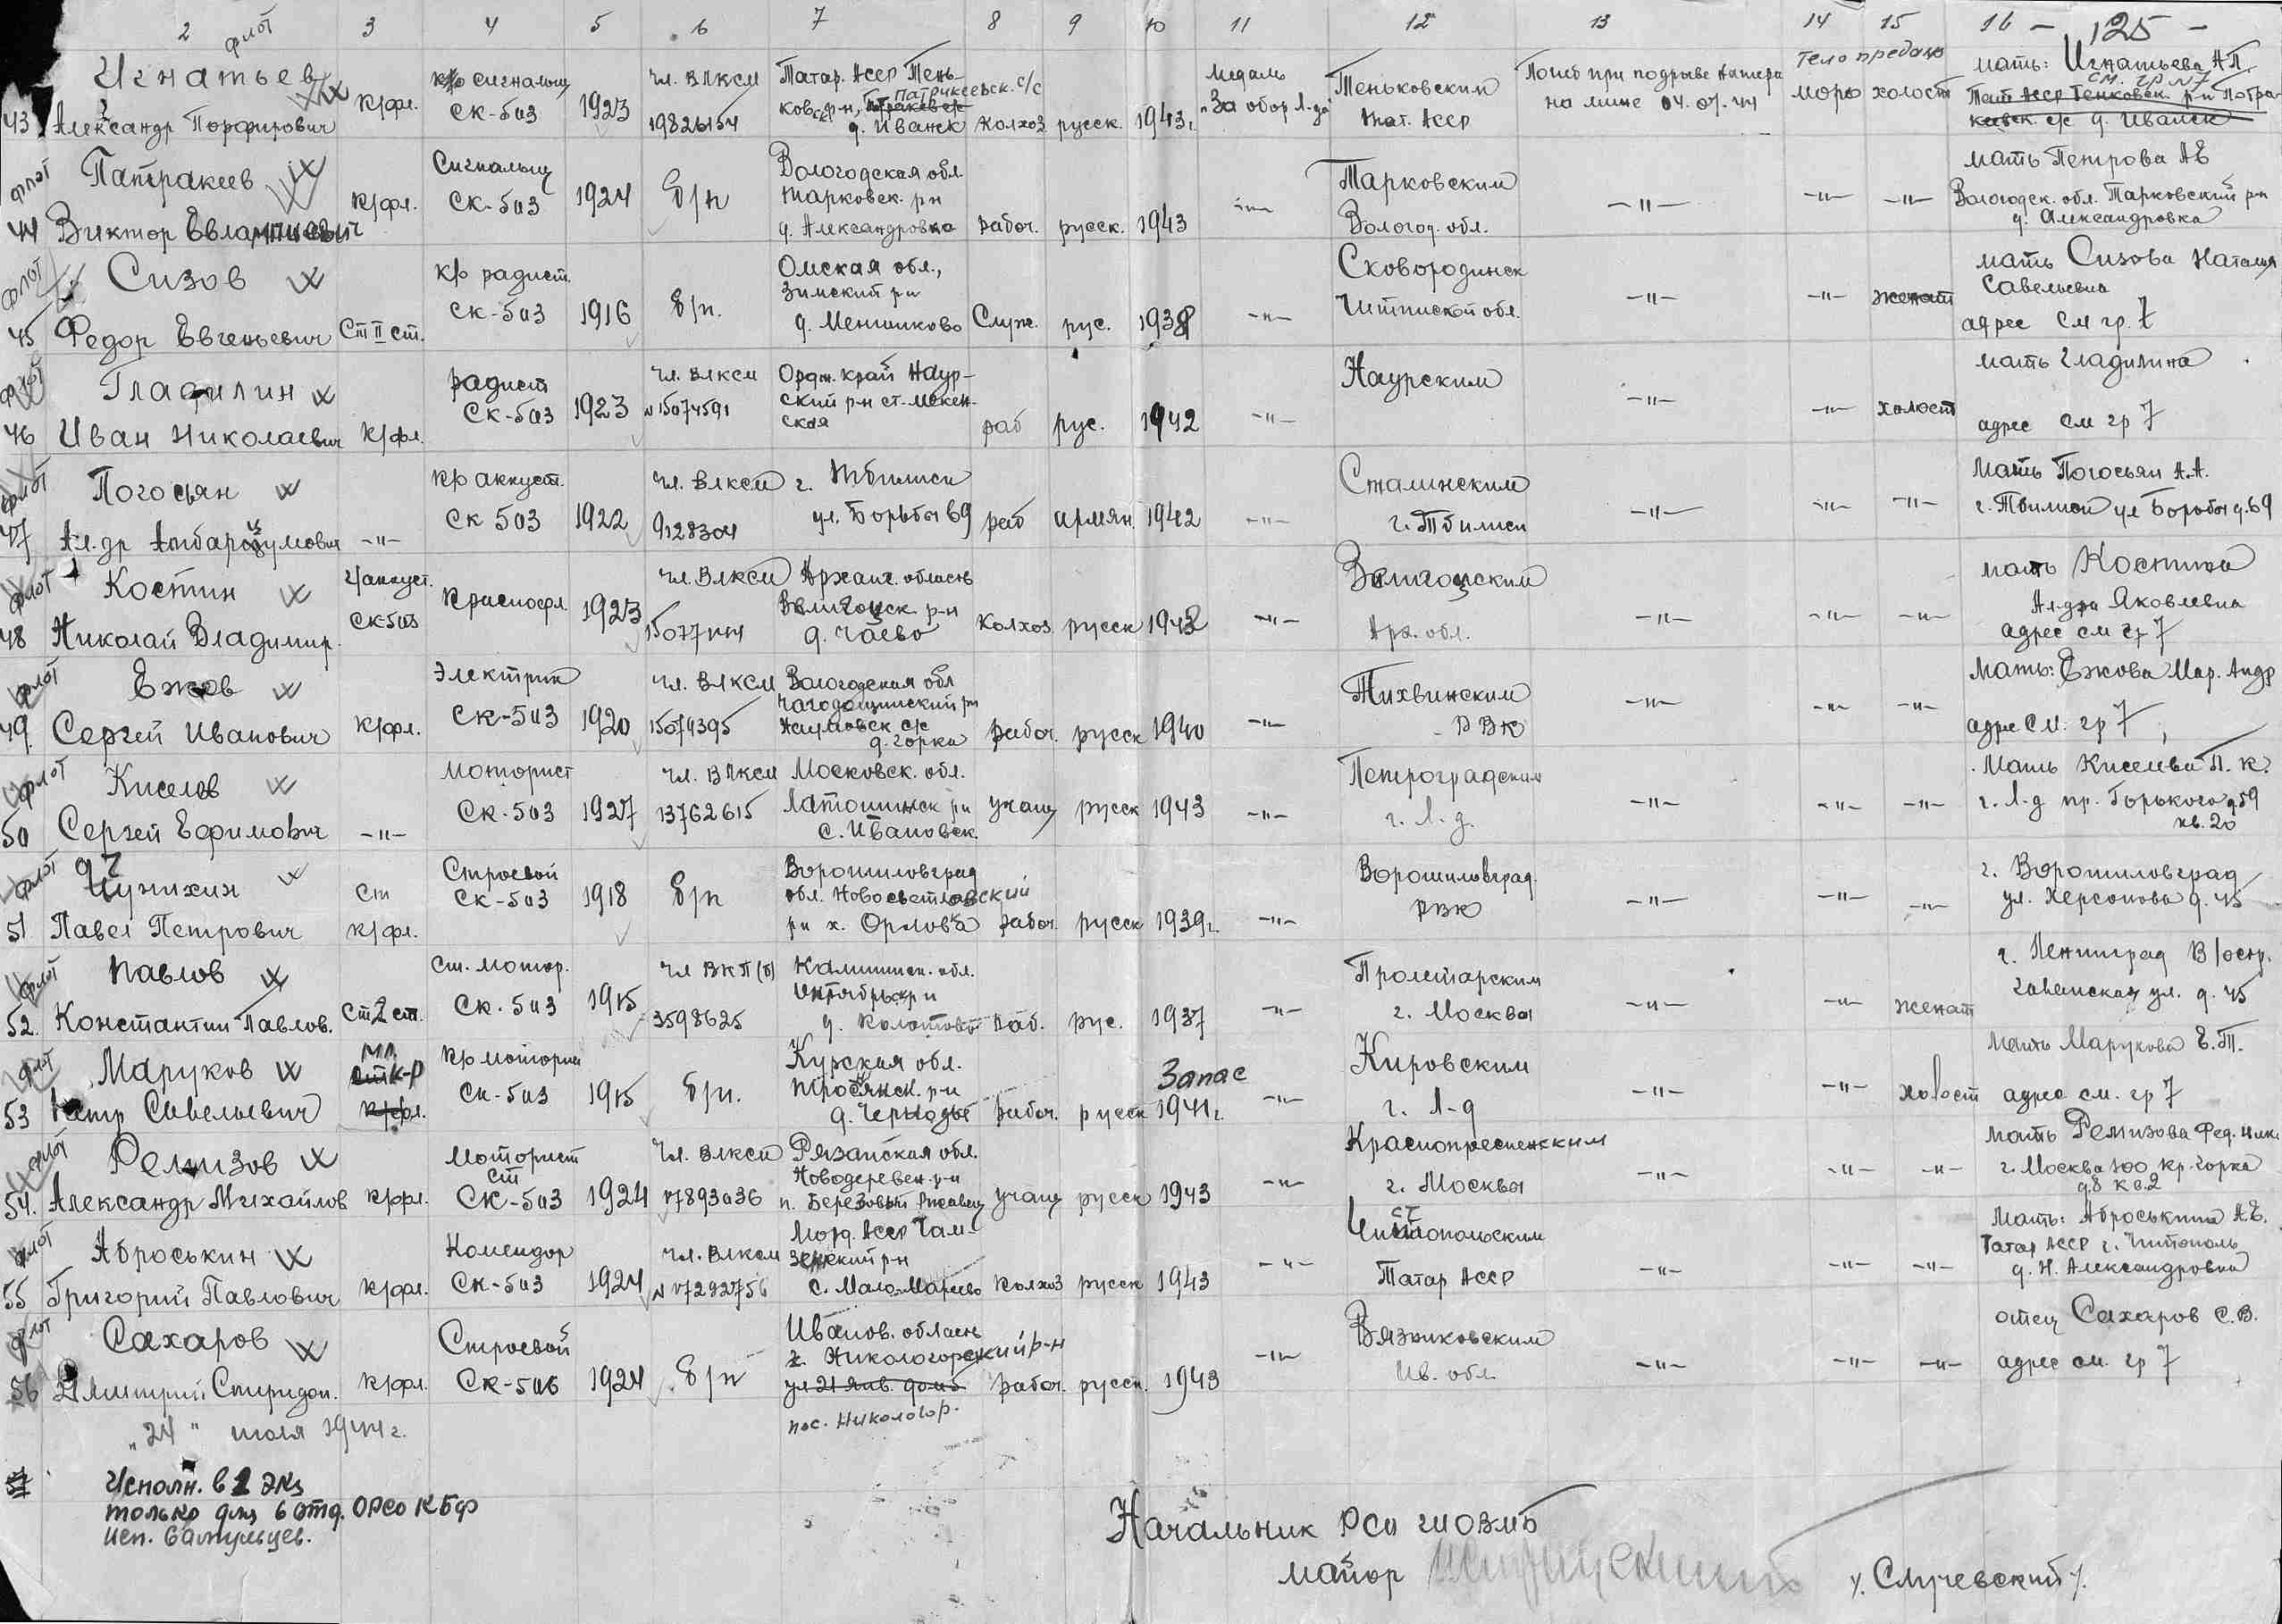 2 3 4 5 6 7 8 9 10 11 12 13 14 15 16 - 125 -
флот
43 Игнатьев
Александр Порфирович
к/фл.
к/ф сигнальщ
СК-503
1923
чл. ВЛКСМ
19826154
Татар. АССР Тень-
ковск р-н, Патрикеевск. с/с
д. Иванск
колхоз
русск.
1943г
Медаль
"За обор Л-да"
Теньковским
Тат. АССР
Погиб при подрыве катера
на мине 04.07.44
Тело предано
морю
холост
мать: Игнатьева А.П.
см. гр. №7
Тат АССР Тенковск. р-н Патра-
кеевск. с/с д. Иванск
флот
44 Патракеев
Виктор Евлампиевич
к/фл.
Сигнальщ
СК-503
1924
б/п
Вологодская обл.
Тарковск. р-н
д. Александровка
рабоч.
русск.
1943
-"-
Тарковским
Вологод. обл.
-"-
-"-
-"-
мать Петрова А Е
Вологодск. обл. Тарковский р-н
д. Александровка
флот
45 Сизов
Федор Евгеньевич
Ст II ст.
к/ф радист.
СК-503
1916
б/п.
Омская обл.,
д. Меншиково
Служ.
рус.
1938
-"-
Сковородинск
Читинской обл.
-"-
-"-
женат
мать Сизова Наталия
Савельевна
адрес см гр. 7
флот
46 Гладилин
Иван Николаевич
к/фл.
радист
СК-503
1923
чл. ВЛКСМ
№15074591
Ордж. край Наур-
ский р-н ст. Мекен-
ская
раб
рус.
1942
-"-
Наурским
-"-
-"-
холост
мать Гладилина
адрес см гр 7
флот
47 Погосьян
Ал.др
-"-
кр аккуст.
СК 503
1922
чл. ВЛКСМ
9128304
г. Тбилиси
ул. Борьбы 69
раб
армян
1942
-"-
Сталинским
г. Тбилиси
-"-
-"-
-"-
мать Погосьян А.А.
г. Тбилиси ул Борьбы д.69
флот
48 Костин
Николай Владимир.
Ч/аккуст.
СК-503
Краснофл.
1923
чл. ВЛКСМ
Арханг. область
р-н
д. Чаево
колхоз
русск
1942
-"-
Арх. обл.
-"-
-"-
-"-
мать Костина
Ал-дра Яковлевна
адрес см гр 7
флот
49. Ежов
Сергей Иванович
к/фл.
Электрик
СК-503
1920
чл. ВЛКСМ
15074395
Вологодская обл
Чагодощинский р-н
Наумовск с/с
д. Горка
рабоч.
русск
1940
-"-
Тихвинским
РВК
-"-
-"-
-"-
мать: Ежова Мар. Андр
адрес см. гр 7
флот
50 Киселев
Сергей Ефимович
-"-
моторист
СК-503
1927
чл. ВЛКСМ
13762615
Московск. обл.
Латошинск р-н
с. Ивановск.
учащ
русск
1943
-"-
Петроградским
г. Л-д.
-"-
-"-
-"-
Мать Киселева П. К.
г. Л-д пр. Горького д 59
кв. 20
флот
51 Чунихин
Павел Петрович
Ст
к/фл.
Строевой
СК-503
1918
б/п
Ворошиловград
обл. Новосветловский
р-н х. Орловка
рабоч.
русск
1939г.
-"-
Ворошиловград.
РВК
-"-
-"-
-"-
г. Ворошиловград
ул. Херсонова д. 45
флот
52. Павлов
Константин Павлов.
Ст 2 ст.
Ст. мотор.
СК-503
1915
чл ВКП(б)
3598625
Калининск. обл.
Октябрьск р-н
раб.
рус.
1937
-"-
Пролетарским
г. Москвы
-"-
-"-
женат
г. Ленинград В/остр.
Гаванская ул. д. 45
флот
53 Маруков
Петр Савельевич
мл.
ст к-р
к/фл.
кр моторист
СК-503
1915
б/п.
Курская обл.
Троснянск. р-н
рабоч.
русск
Запас
1941г.
-"-
Кировским
г. Л-д
-"-
-"-
холост
мать Марукова Е.Т.
адрес см. гр 7
флот
54. Ремизов
Александр Михайлов
к/фл.
Моторист
ст
СК-503
1924
чл. ВЛКСМ
17893036
Рязанская обл.
Новодеревен. р-н
учащ
русск
1943
-"-
Краснопресненским
г. Москвы
-"-
-"-
-"-
мать Ремизова Фед. Ник.
г. Москва 100 Кр. Горка
д 8 кв.2
флот
55 Аброськин
Григорий Павлович
к/фл.
Комендор
СК-503
1924
чл. ВЛКСМ
№ 17292756
Морд. АССР Чам-
зинский р-н
с. Мало-Мареево
колхоз
русск
1943
-"-
Чистопольским
Татар АССР
-"-
-"-
-"-
Мать: Аброськина А.Е.
Татар АССР г. Читополь
д. Н. Александровка
флот
56 Сахаров
Дмитрий Спиридон.
к/фл.
Строевой
СК-506
1924
б/п
Иванов. область
г. Никологорский р-н
ул 21 Янв. дом 5
пос. Никологор.
рабоч.
русск.
1943
-"-
Вязниковским
Ив. обл.
-"-
-"-
-"-
отец Сахаров С.В.
адрес см. гр 7
"24" июля 1944г.
Исполн. в 1 экз
только для 6 отд. ОРСО КБФ
исп.
Начальник
майор
/. Случевский /.